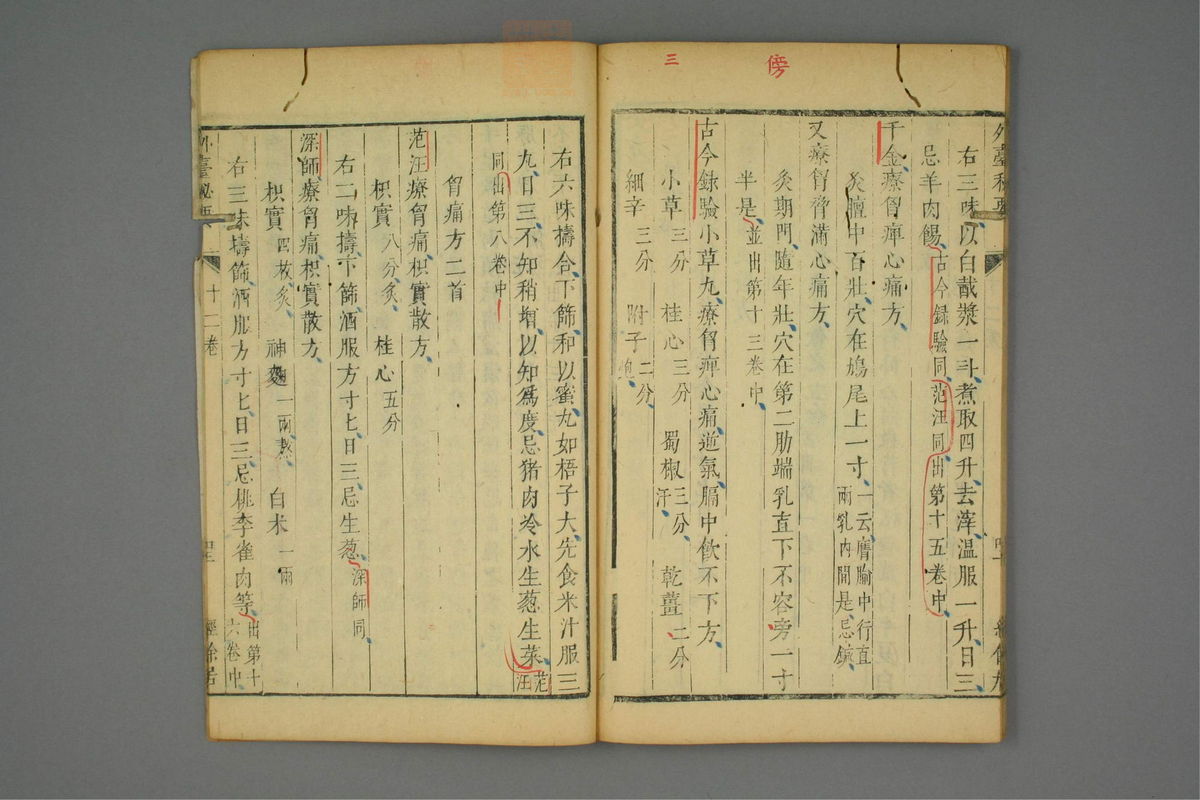 三
傍
右三味以白䤗漿一斗煮取四升去滓溫服一升日三
忌羊肉餳古今錄驗同范汪同出第十五卷中
千金療胷痺心痛方
灸膻中百壯穴在鳩尾上一寸一云膺腧中行直兩乳内間是忌鍼
又療胷脅滿心痛方
灸期門隨年壯穴在第二肋端乳直下不容旁一寸
半是並出第十三卷中
古今錄驗小草丸療胷痺心痛逆氣膈中飲不下方
小草三分 桂心三分 蜀椒三分汗 乾薑二分
細辛三分 附子二分炮
右六味擣合下篩和以蜜丸如梧子大先食米汁服三
丸日三不知稍增以知爲度忌猪肉冷水生葱生菜范汪
同出第八卷中
胷痛方二首
范汪療胷痛枳實散方
枳實八分炙 桂心五分
右二味擣下篩酒服方寸七日三忌生葱深師同
深師療胷痛枳實散方
枳實四枚炙 神麴一兩熬 白术一兩
右三味擣篩酒服方寸七日三忌桃李雀肉等出第十六卷中
外臺秘要 十二卷 經餘居